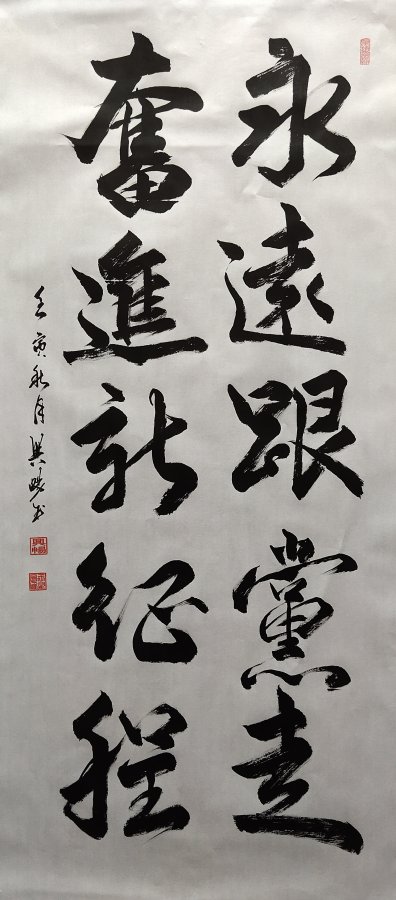 永遠跟黨走
奮進新征程
壬寅秋月興曉书